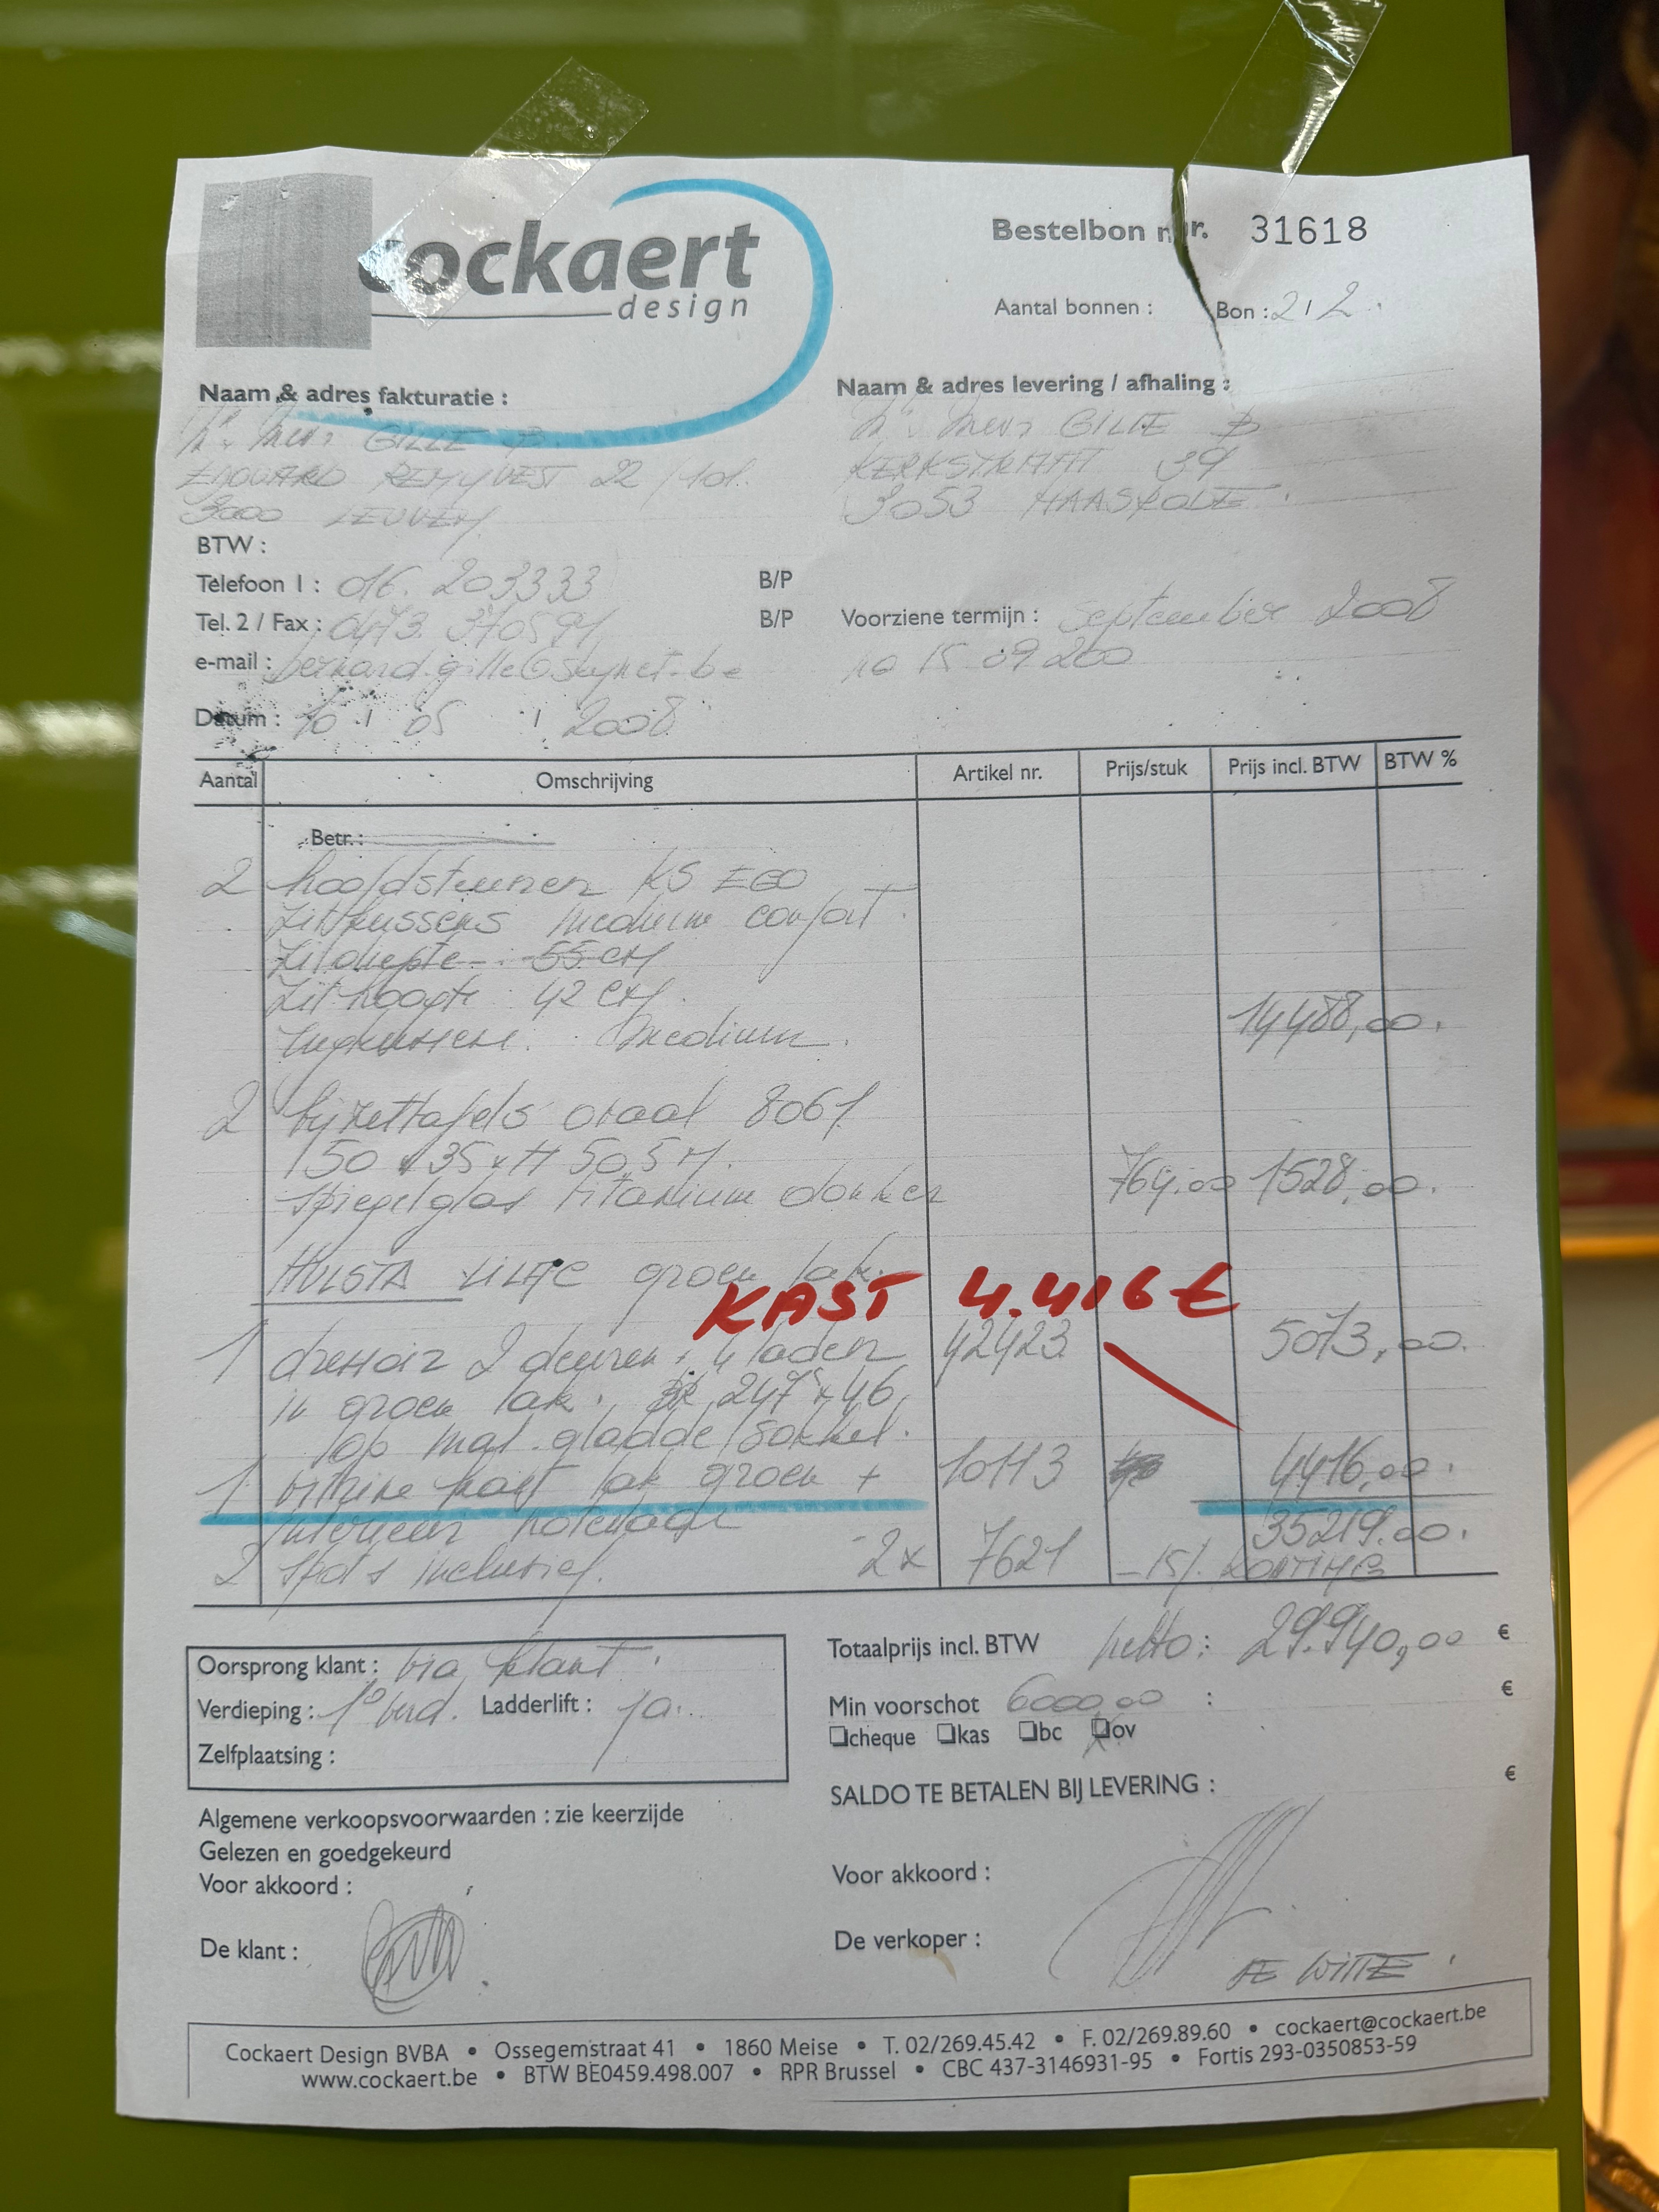 cockaert
design
Bestelbon nr. 31618
Aantal bonnen : Bon : 2 / 2
Naam & adres fakturatie :
GILLE
EDOUARD REMYVEST 22 / 101
3000 LEUVEN
Naam & adres levering / afhaling :
GILLE
KERKSTRAAT 39
3053 HAASRODE
BTW :
Telefoon 1 : 016. 203333 B/P
Tel. 2 / Fax : 0473. B/P
e-mail : bernard.gille@skynet.be
Datum : 10 / 05 / 2008
Voorziene termijn : September 2008
na 15 09 200
Aantal Omschrijving Artikel nr. Prijs/stuk Prijs incl. BTW BTW %
Betr. :
2 hoofdsteunen KS EGO
Zitkussens medium confort
Zitdiepte 55 CM
Zithoogte 42 CM.
rugkussens. Medium. 14488,00.
2 bijzettafels ovaal 8061
150 x 35 x H 50,5
spiegelglas titanium donker 764.00 1528,00.
HULSTA groen lak.
KAST 4.416€
1 dressoir 2 deuren + 4 laden 42423 5073,00.
in groen lak. 247 x 46
top mat gladde sokkel.
1 vitrine kast lak groen + 10113 4416,00.
interieur 35219.00.
2 spots inclusief. 2x 7621 - 15% KORTING
Oorsprong klant : via klant
Verdieping : 1° verd. Ladderlift : ja.
Zelfplaatsing :
Totaalprijs incl. BTW netto : 29.940,00 €
Min voorschot 6000,00 : €
cheque kas bc ov
SALDO TE BETALEN BIJ LEVERING : €
Algemene verkoopsvoorwaarden : zie keerzijde
Gelezen en goedgekeurd
Voor akkoord :
De klant :
Voor akkoord :
De verkoper :
DE WITTE
Cockaert Design BVBA • Ossegemstraat 41 • 1860 Meise • T. 02/269.45.42 • F. 02/269.89.60 • cockaert@cockaert.be
www.cockaert.be • BTW BE0459.498.007 • RPR Brussel • CBC 437-3146931-95 • Fortis 293-0350853-59